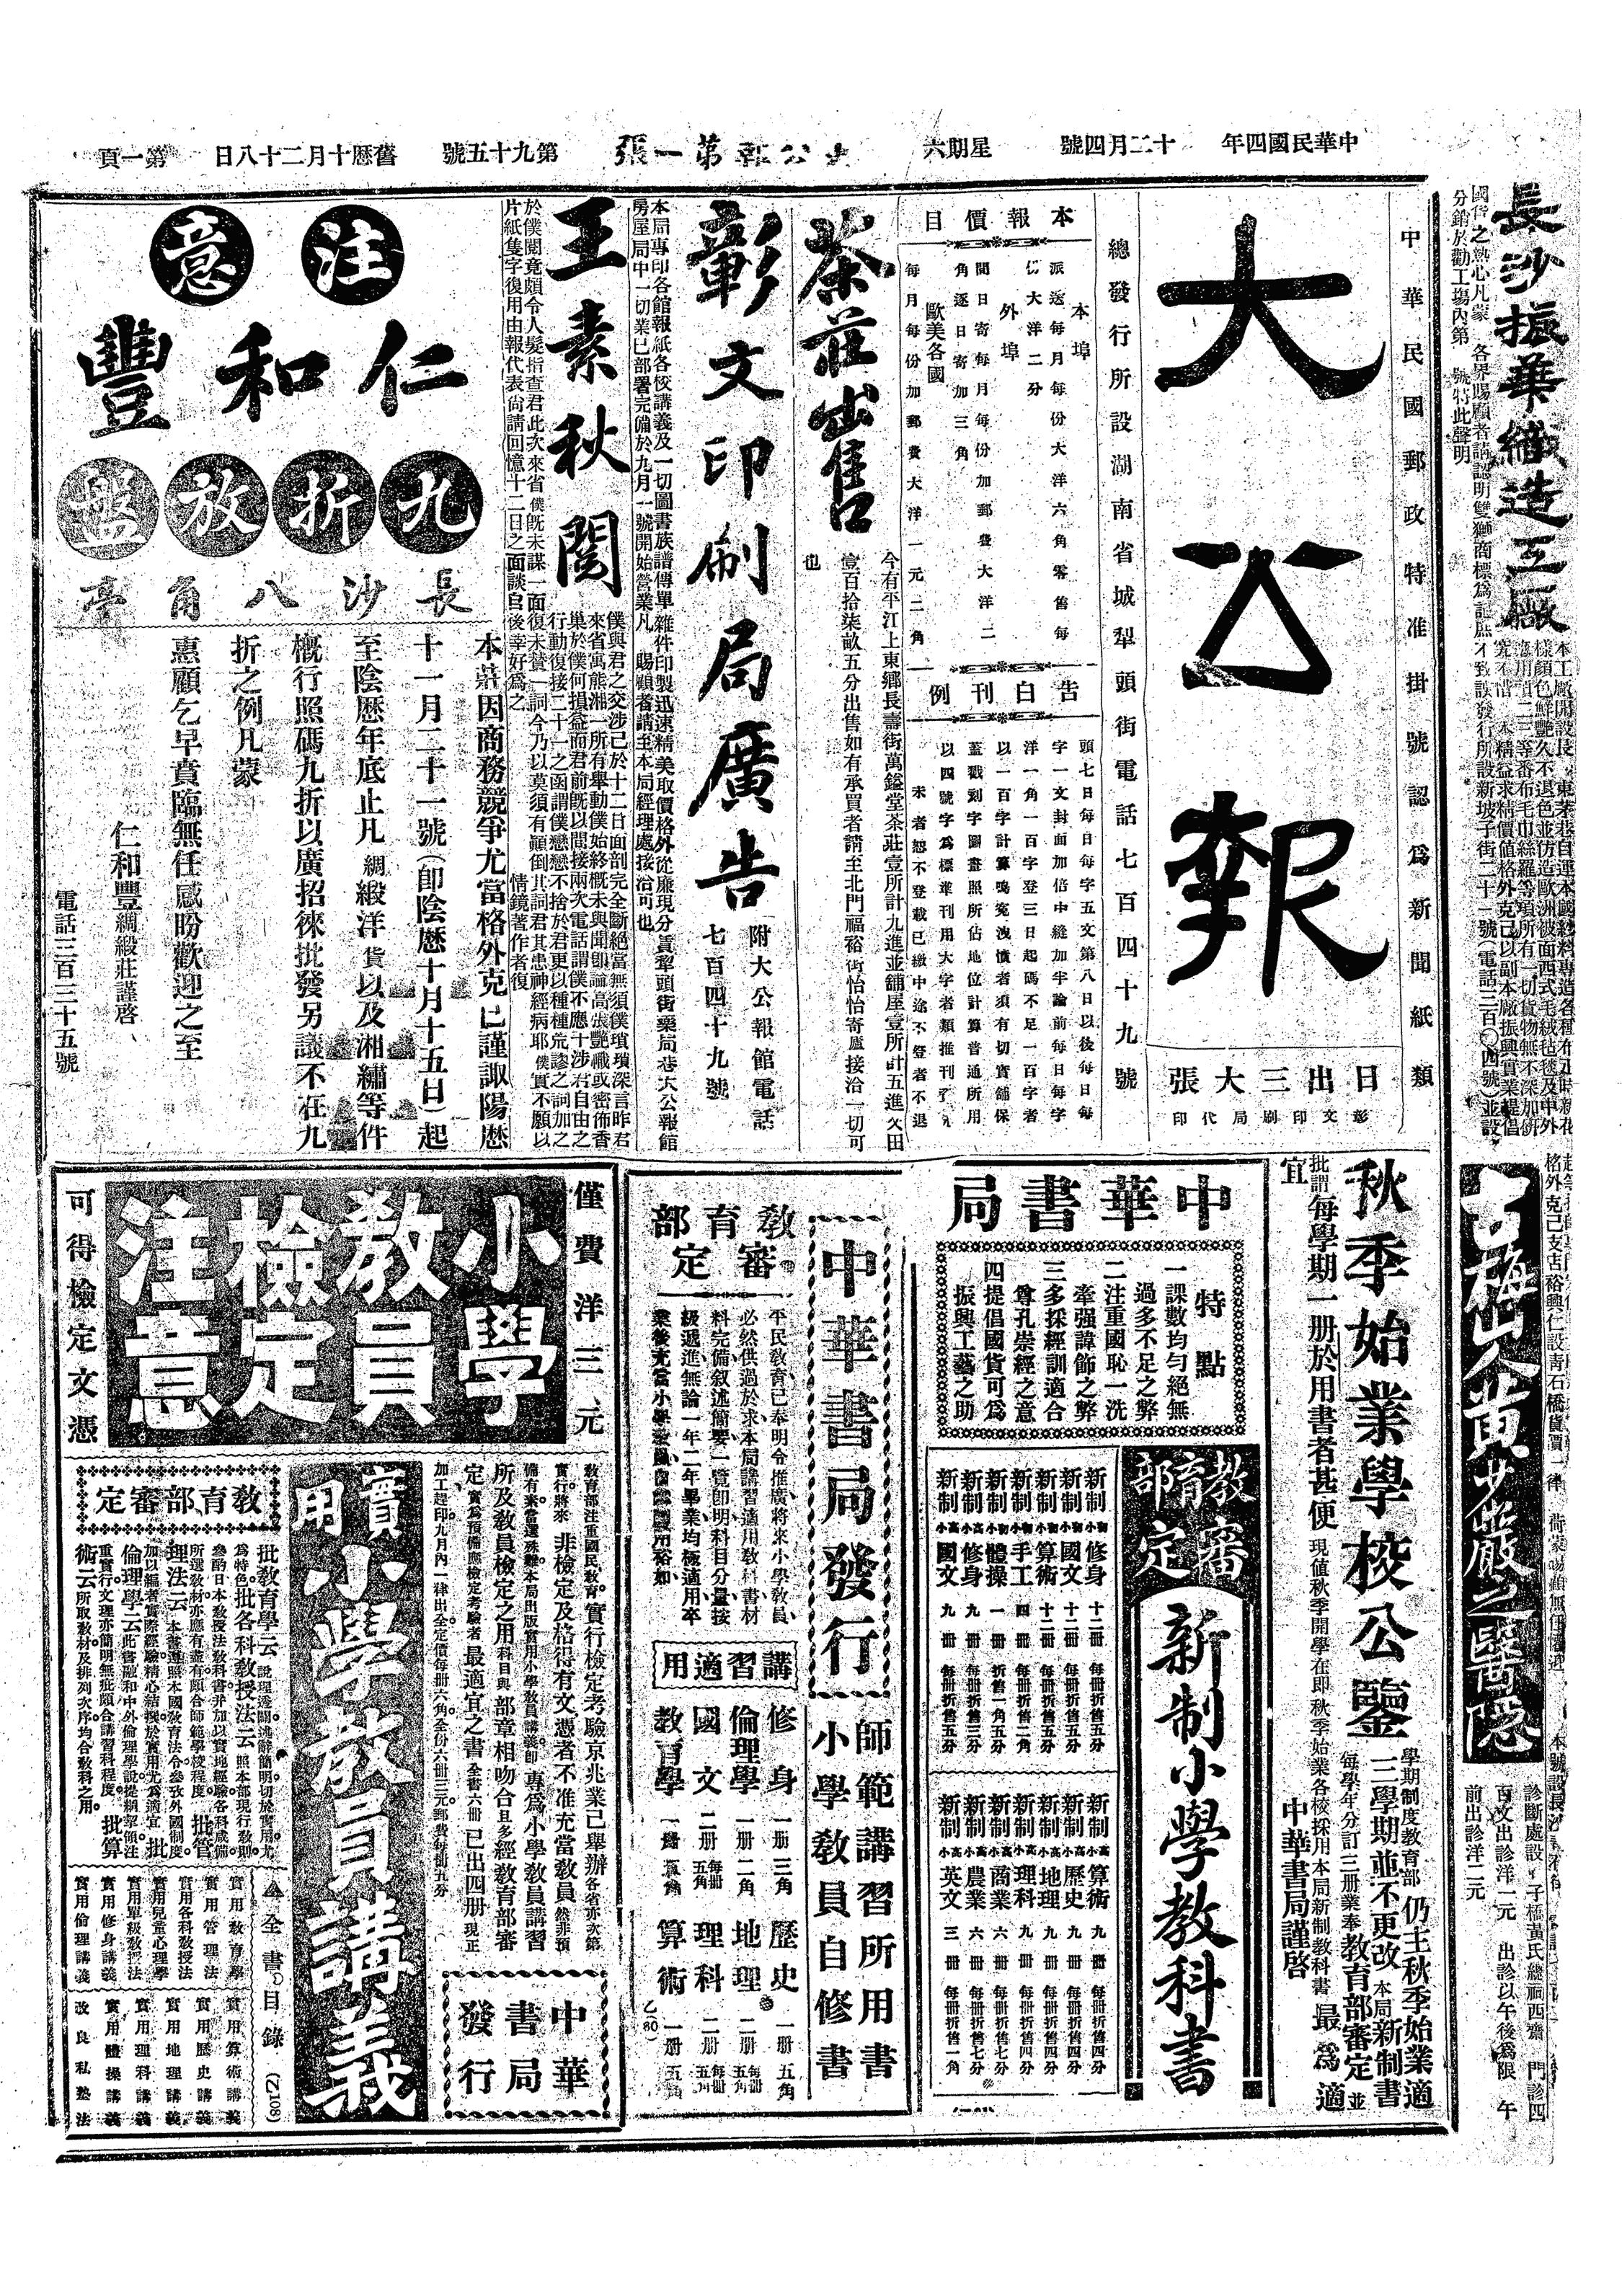 中華民國四年
十二月四號
星期六
大公報第一張
第九十五號
舊曆十月二十八日
第一頁
長沙振華織造工廠
國貨之熱心凡蒙 各界賜顧者請認明雙獅商標爲記庶不致誤發行所設新坡子街二十一號(電話三百〇四號)並設
分銷於勸工場內第 號特此聲明
中華民國郵政特准掛號認爲新聞紙類
大公報
日出三大張
彰文印刷局代印
總發行所設湖南省城犁頭街電話七百四十九號
本報價目
本埠
派送每月每份大洋六角零售每
份大洋二分
外埠
間日寄每月每份加郵費大洋二
角逐日寄加三角
歐美各國
每月每份加郵費大洋一元二角
告白刊例
頭七日每日每字五文第八日以後每日每
字一文封面加倍中縫加半論前每日每字
洋一角一百字登三日起碼不足一百字者
以一百字計算鳴寃洩憤者須有切實鋪保
蓋戳刻字圖畫照所佔地位計算普通所用
以四號字爲標準刊用大字者類推刊
未者恕不登載已繳中途不登者不退
茶莊出售
今有平江上東鄉長壽街萬鎰堂茶莊壹所計九進並舖屋壹所計五進又田
壹百拾柒畝五分出售如有承買者請至北門福裕街怡怡寄廬接洽一切可
也
彰文印刷局廣告
附大公報館電話
七百四十九號
本局專印各館報紙各校講義及一切圖書族譜傳單雜件印製迅速精美取價格外從廉現分賃犂頭街藥局巷大公報館
房屋局中一切業已部署完備於九月一號開始營業凡 賜顧者請至本局經理處接洽可也
王素秋閱
僕與君之交涉已於十二日面剖完全斷絕當無須僕瑣瑣深言昨君
來省寓熊湘一所有舉動僕始終概未與聞卽諭高張艷幟或密佈香
巢於僕何損益而君前旣以間接兩次電話謂僕不應干涉君自由之
行動復接二十一之函謂僕戀戀不捨於君更以種種荒謬之詞加之
於僕閱竟頗令人髮指查君此次來省僕旣未謀一面復未贊一詞今乃以莫須有顚倒其詞君其患神經病耶僕實不願以
片紙隻字復用由報代表尙請回憶十二日之面談自後幸好爲之
情鏡著作者復
注意
仁和豐
九折放盤
長沙八角亭
本莊因商務競爭尤當格外克己謹諏陽歷
十一月二十一號(卽陰歷十月十五日)起
至陰歷年底止凡綢緞洋貨以及湘繡等件
槪行照碼九折以廣招徠批發另議不在九
折之例凡蒙
惠顧乞早賁臨無任感盼歡迎之至
仁和豐綢緞莊謹啓
電話三百三十五號
古梅山人黃少嚴之醫隱
診斷處設 子橋黃氏總祠西齋 門診四
百文出診洋一元 出診以午後爲限 午
前出診洋二元
秋季始業學校公鑒
學期制度教育部 仍主秋季始業適
二三學期並不更改 本局新制書
每學年分訂三册業奉教育部審定 並
批謂每學期一册於用書者甚便 現值秋季開學在即 秋季始業各校採用本局新制教科書 最爲適
宜
中華書局謹啓
中華書局
特點
一課數均勻絕無
過多不足之弊
二注重國恥一洗
牽强諱飾之弊
三多採經訓適合
尊孔崇經之意
四提倡國貨可爲
振興工藝之助
教育部審定
新制小學教科書
新制初小修身 十二册 每册折售五分
新制初小國文 十二册 每册折售五分
新制初小算術 十二册 每册折售五分
新制初小手工 四册 每册折售二角
新制初小體操 一册 折售一角五分
新制高小修身 九册 每册折售三分
新制高小國文 九册 每册折售五分
新制高小算術 九册 每册折售四分
新制高小歷史 九册 每册折售四分
新制高小地理 九册 每册折售四分
新制高小理科 九册 每册折售四分
新制高小商業 六册 每册折售七分
新制高小農業 六册 每册折售七分
新制高小英文 三册 每册折售一角
中華書局發行
師範講習所用書
小學教員自修書
教育部審定
平民教育已奉明令推廣將來小學教員
必然供過於求本局講習適用教科書材
料完備敘述簡要一覽卽明科目分量按
級遞進無論一年二年畢業均極適用卒
講習適用
修身 一册 三角
倫理學 一册 二角
國文 二册 每册五角
教育學 一册
歷史 一册 五角
地理 二册 每册五角
理科 二册 每册五角
算術 一册
(乙80)
僅費洋三元
小學教員檢定注意
可得檢定文憑
教育部注重國民教育實行檢定考驗京兆業已舉辦各省亦次第
實行將來非檢定及格得有文憑者不准充當教員然非預
備有素當選殊難本局出版實用小學教員講義卽專爲小學教員講習
所及教員檢定之用科目與部章相吻合且多經教育部審
定實爲預備應檢定考驗者最適宜之書全書六册已出四册現正
加工趕印九月內一律出全定價每册六角全份六册三元郵費每册五分
中華書局發行
實用小學教員講義
教育部審定
批教育學云說理透闢遣辭簡明切於實用尤
爲特色批各科教授法云照本部現行教則
參酌日本教授法教科書并加以實地經驗各科咸備
所選教材亦應有盡有頗合師範學校程度 批管
理法云本書遵照本國教育法令參攷外國制度
加以編者實際經驗精心結撰於實用尤爲適宜 批
倫理學云此書融和中外倫理學說提綱挈領注
重實行文理亦簡明無疵頗合講習科程度 批算
術云所取教材及排列次序均合教科之用
全書目錄 (乙108)
實用教育學
實用管理法
實用各科教授法
實用兒童心理學
實用單級教授法
實用修身講義
實用倫理講義
實用算術講義
實用歷史講義
實用地理講義
實用理科講義
實用體操講義
改良私塾法